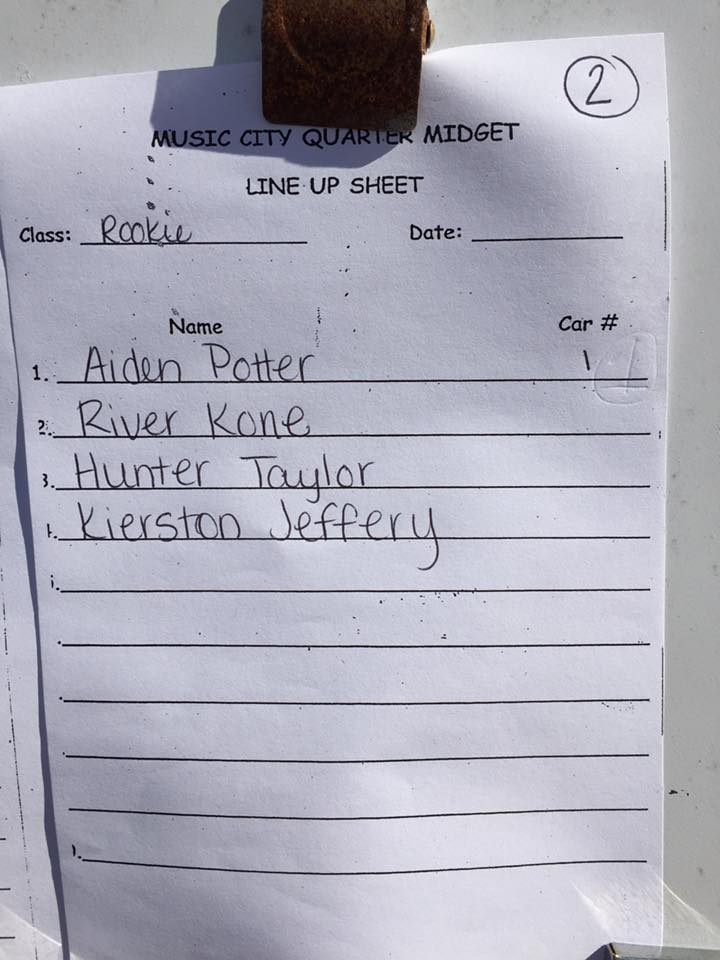 2
MUSIC CITY QUARTER MIDGET
LINE UP SHEET
Class: Rookie Date:
Name Car #
1. Aiden Potter 1
2. River Kone
3. Hunter Taylor
Kierston Jeffery